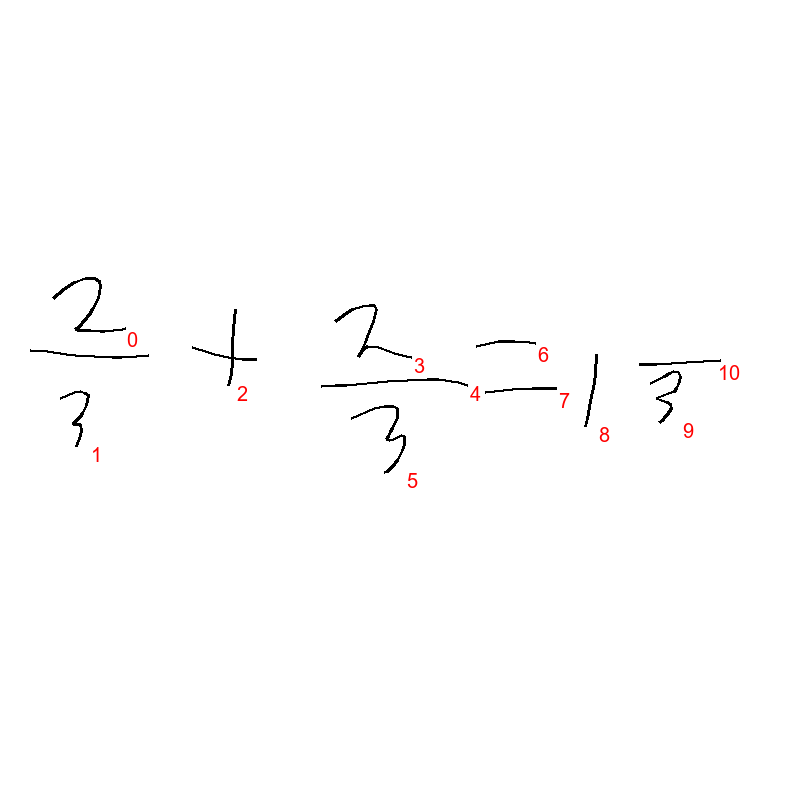 2/3 + 2/3 = 1 /3
0 1 2 3 4 5 6 7 8 9 10